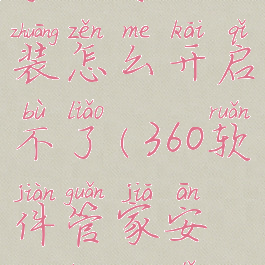 zhuāng zěn me kāi qǐ
装怎么开启
bù liǎo ruǎn
不了(360软
jiàn guǎn jiā ān
件管家安